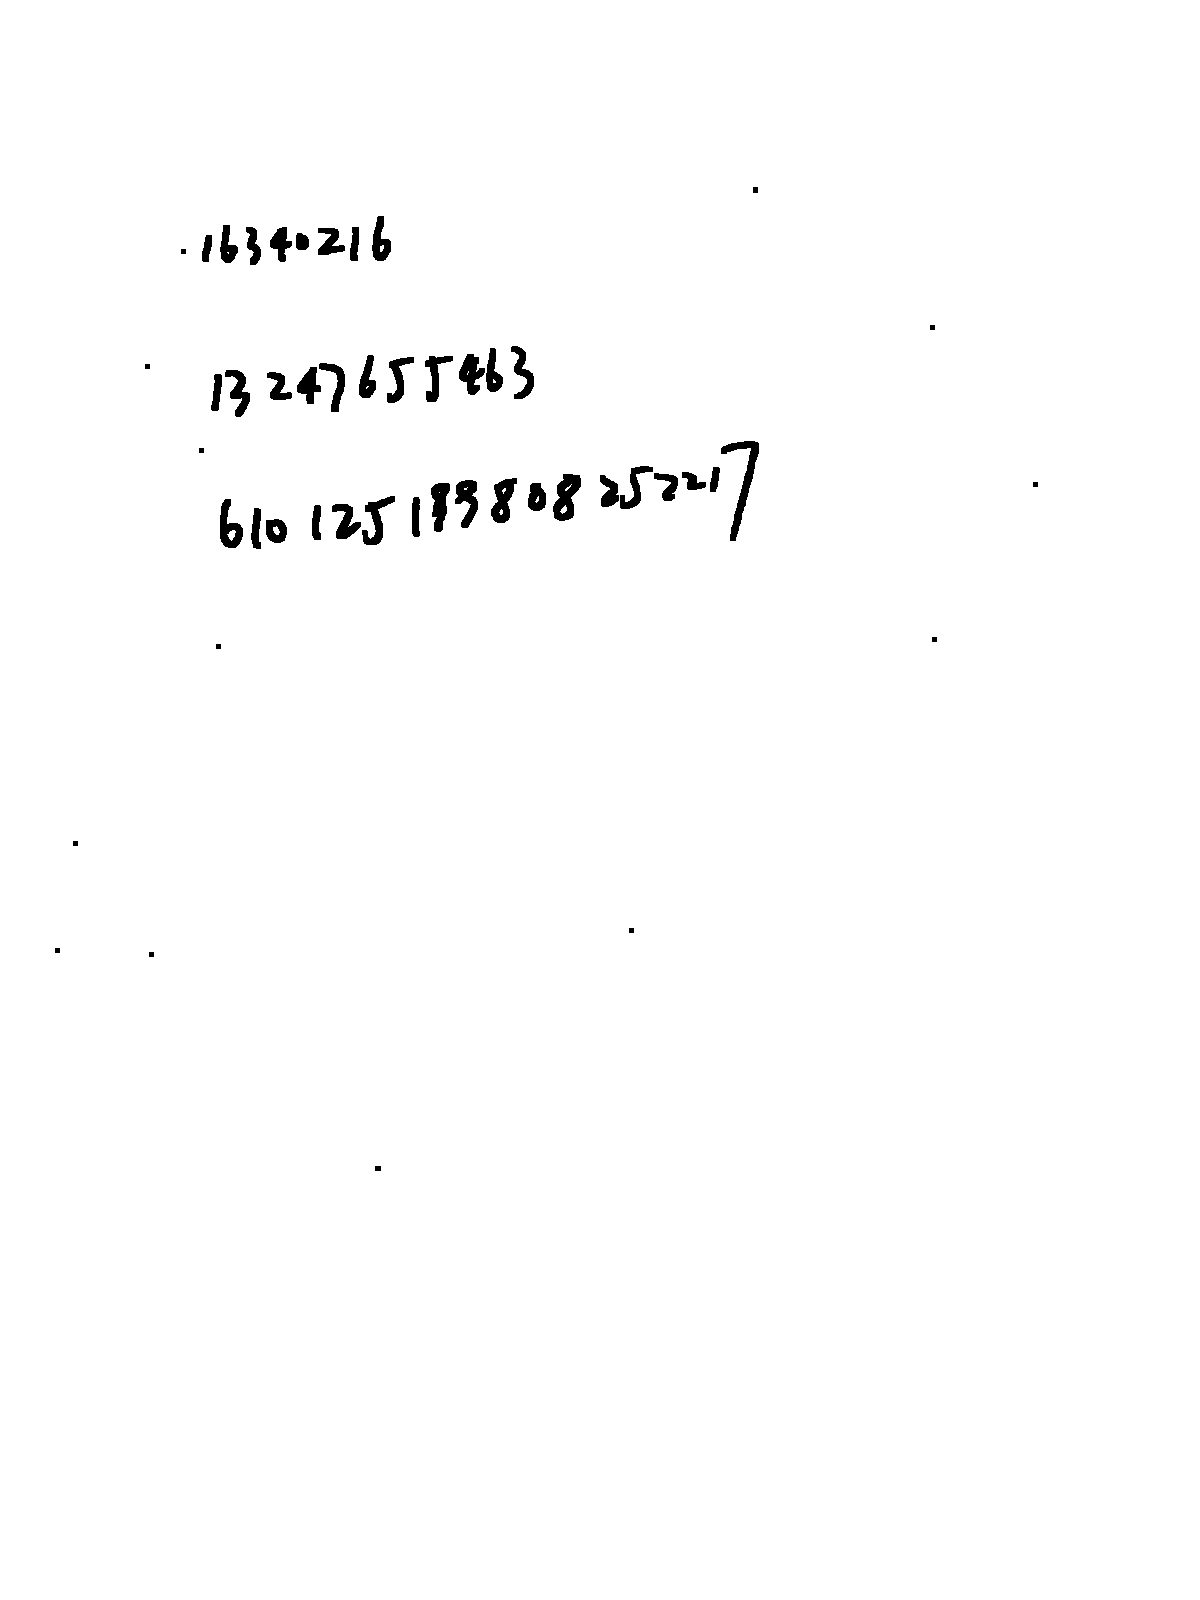 16340216
13247655463
610125199808252217